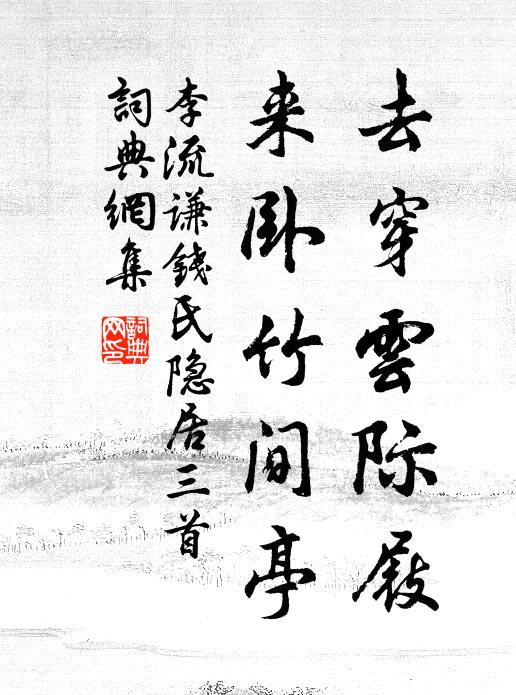 去穿雲际屐
来卧竹间亭
李流谦錢氏隐居三首
詞典網集
詞典网印